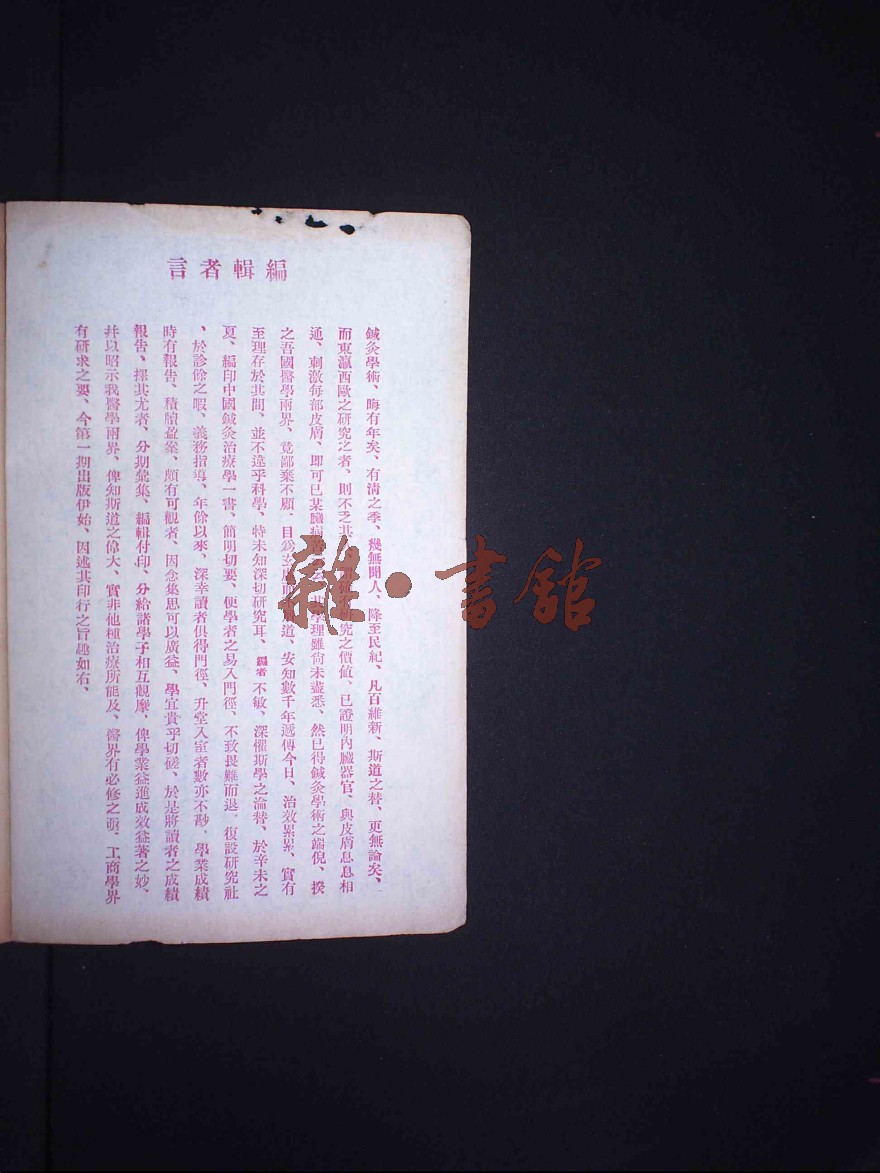 編輯者言
鍼灸學術、晦有年矣、有淸之季、幾無聞人、降至民紀、凡百維新、斯道之替、更無論矣、
而東瀛西歐之研究之者、則不乏其 究之價値、已證明內臟器官、與皮膚息息相
通、刺激每部皮膚、卽可已某臟病 學理雖尙未盡悉、然已得鍼灸學術之端倪、揆
之吾國醫學兩界、竟鄙棄不顧、目爲玄虛而不 道、安知數千年遞傳今日、治效累累、實有
至理存於其間、並不遠乎科學、特未知深切研究耳、編者不敏、深懼斯學之淪替、於辛未之
夏、編印中國鍼灸治療學一書、簡明切要、便學者之易入門徑、不致畏難而退、復設研究社
、於診餘之暇、義務指導、年餘以來、深幸讀者俱得門徑、升堂入室者數亦不尠、學業成績
時有報告、積牘盈案、頗有可觀者、因念集思可以廣益、學宜貴乎切磋、於是將讀者之成績
報告、擇其尤者、分期彙集、編輯付印、分給諸學子相互觀摩、俾學業益進成效益著之妙、
幷以昭示我醫學兩界、俾知斯道之偉大、實非他種治療所能及、醫界有必修之 、工商學界
有研求之要、今第一期出版伊始、因述其印行之旨趣如右、
雜·書館